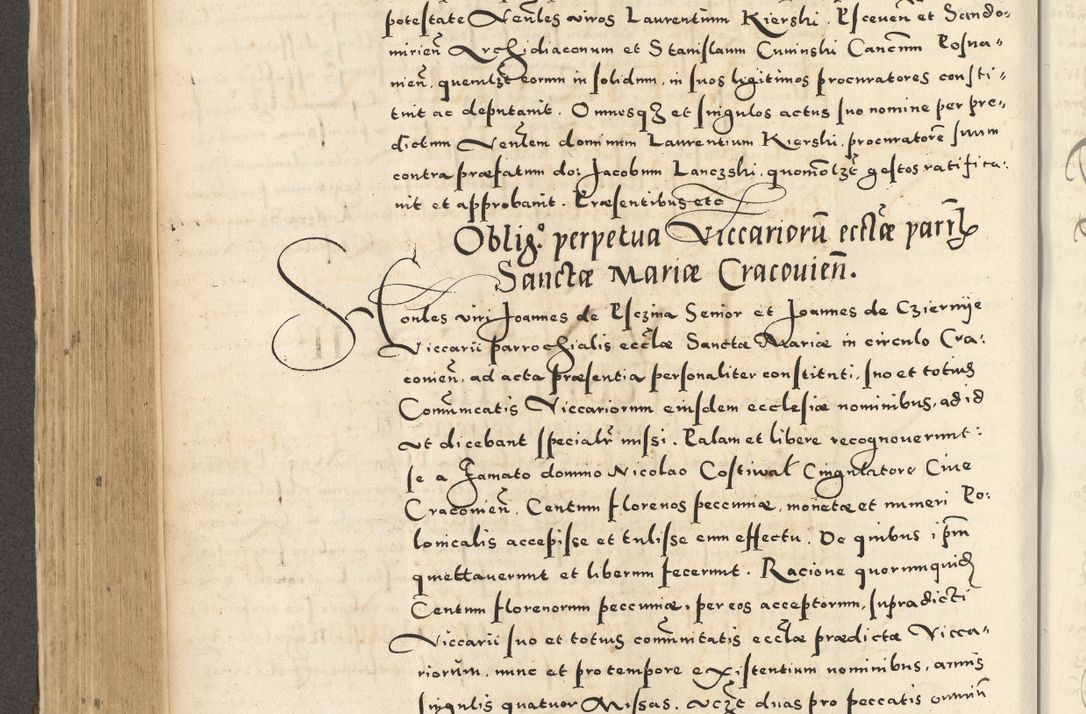 potestate Ven̄les viros Laurentium Kierski, Pſceuen̄ et Sando=
mirien̄ Archidiaconum et Stanislaum Cuminski Canc̄um Poſna=
nien̄, quemlʒt eorum in ſolidum, in ſuos legitimos procuratores conſti=
tuit ac deputauit. Omnesqʒ et ſingulos actus ſuo nomine per pre=
dictum Ven̄lem dominum Laurentium Kierski, procuratorē ſuum
contra præfatum do: Jacobum Lanczski, quomōlʒt geſtos ratifica:
uit et approbauit. Præsentibus etc
Obligº perpetua Viccariorū eccłæ parr̄
Sanctæ Mariæ Cracouien̄.
Honles viri Joannes de Pſczina Senior et Joannes de Czierniie
Viccarii parrochialis eccłæ Sanctæ Mariæ in circulo Cra:
couien̄, ad acta præſentia perſonaliter conſtituti, ſuo et totius
Com̄unicatis Viccariorum eiuſdem eccleſiæ nominibus, ad id
vt dicebant ſpecialr̄ miſſi. Palam et libere recognouerunt:
ſe a famato domino Nicolao Coſtiwał Cingulatore Ciue
Cracouien̄, Centum florenos peccuniæ, monetæ et numeri Po:
lonicalis accepiſſe et tuliſſe cum effectu. De quibus ipm̄
quettauerunt et liberum fecerunt. Racione quorumquid
Centum florenorum peccuniæ, per eos acceptorum, ſupradicti
Viccarii ſuo et totius com̄unitatis eccłæ prædictæ Vicca=
riorum, nunc et pro tempore exiſtentium nominibus, annis
ſingulis quatuor Miſſas, vcʒt duas pro peccatis omniū